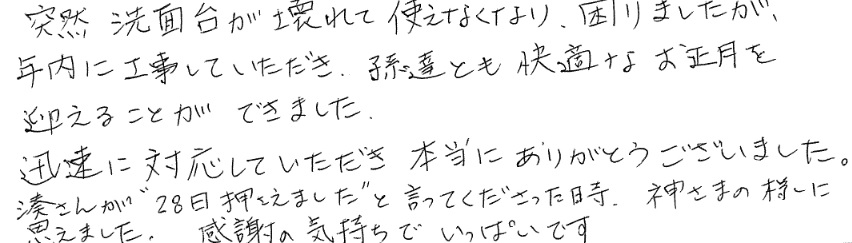 突然 洗面台が壊れて使えなくなり、困りましたが、
年内に工事していただき、孫達とも快適なお正月を
迎えることができました。
迅速に対応していただき本当にありがとうございました。
湊さんが"28日押えました"と言ってくださった時、神さまの様に
思えました。感謝の気持ちでいっぱいです